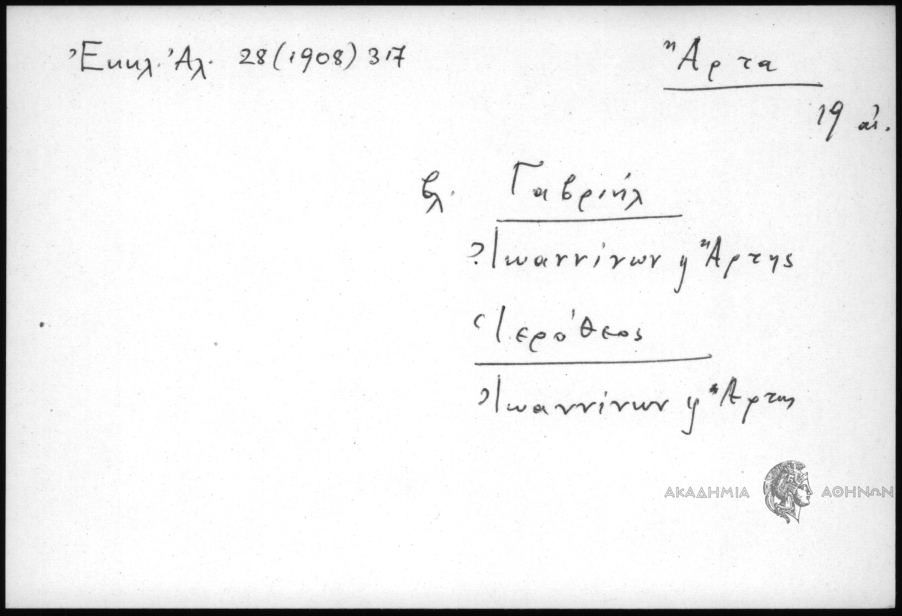 Ἐκκλ. Ἀλ. 28 (1908) 317
Ἄρτα
19 αἰ.
βλ. Γαβριήλ
Ἰωαννίνων ϗ Ἄρτης
Ἱερόθεος
Ἰωαννίνων ϗ Ἄρτης
ΑΚΑΔΗΜΙΑ ΑΘΗΝΩΝ